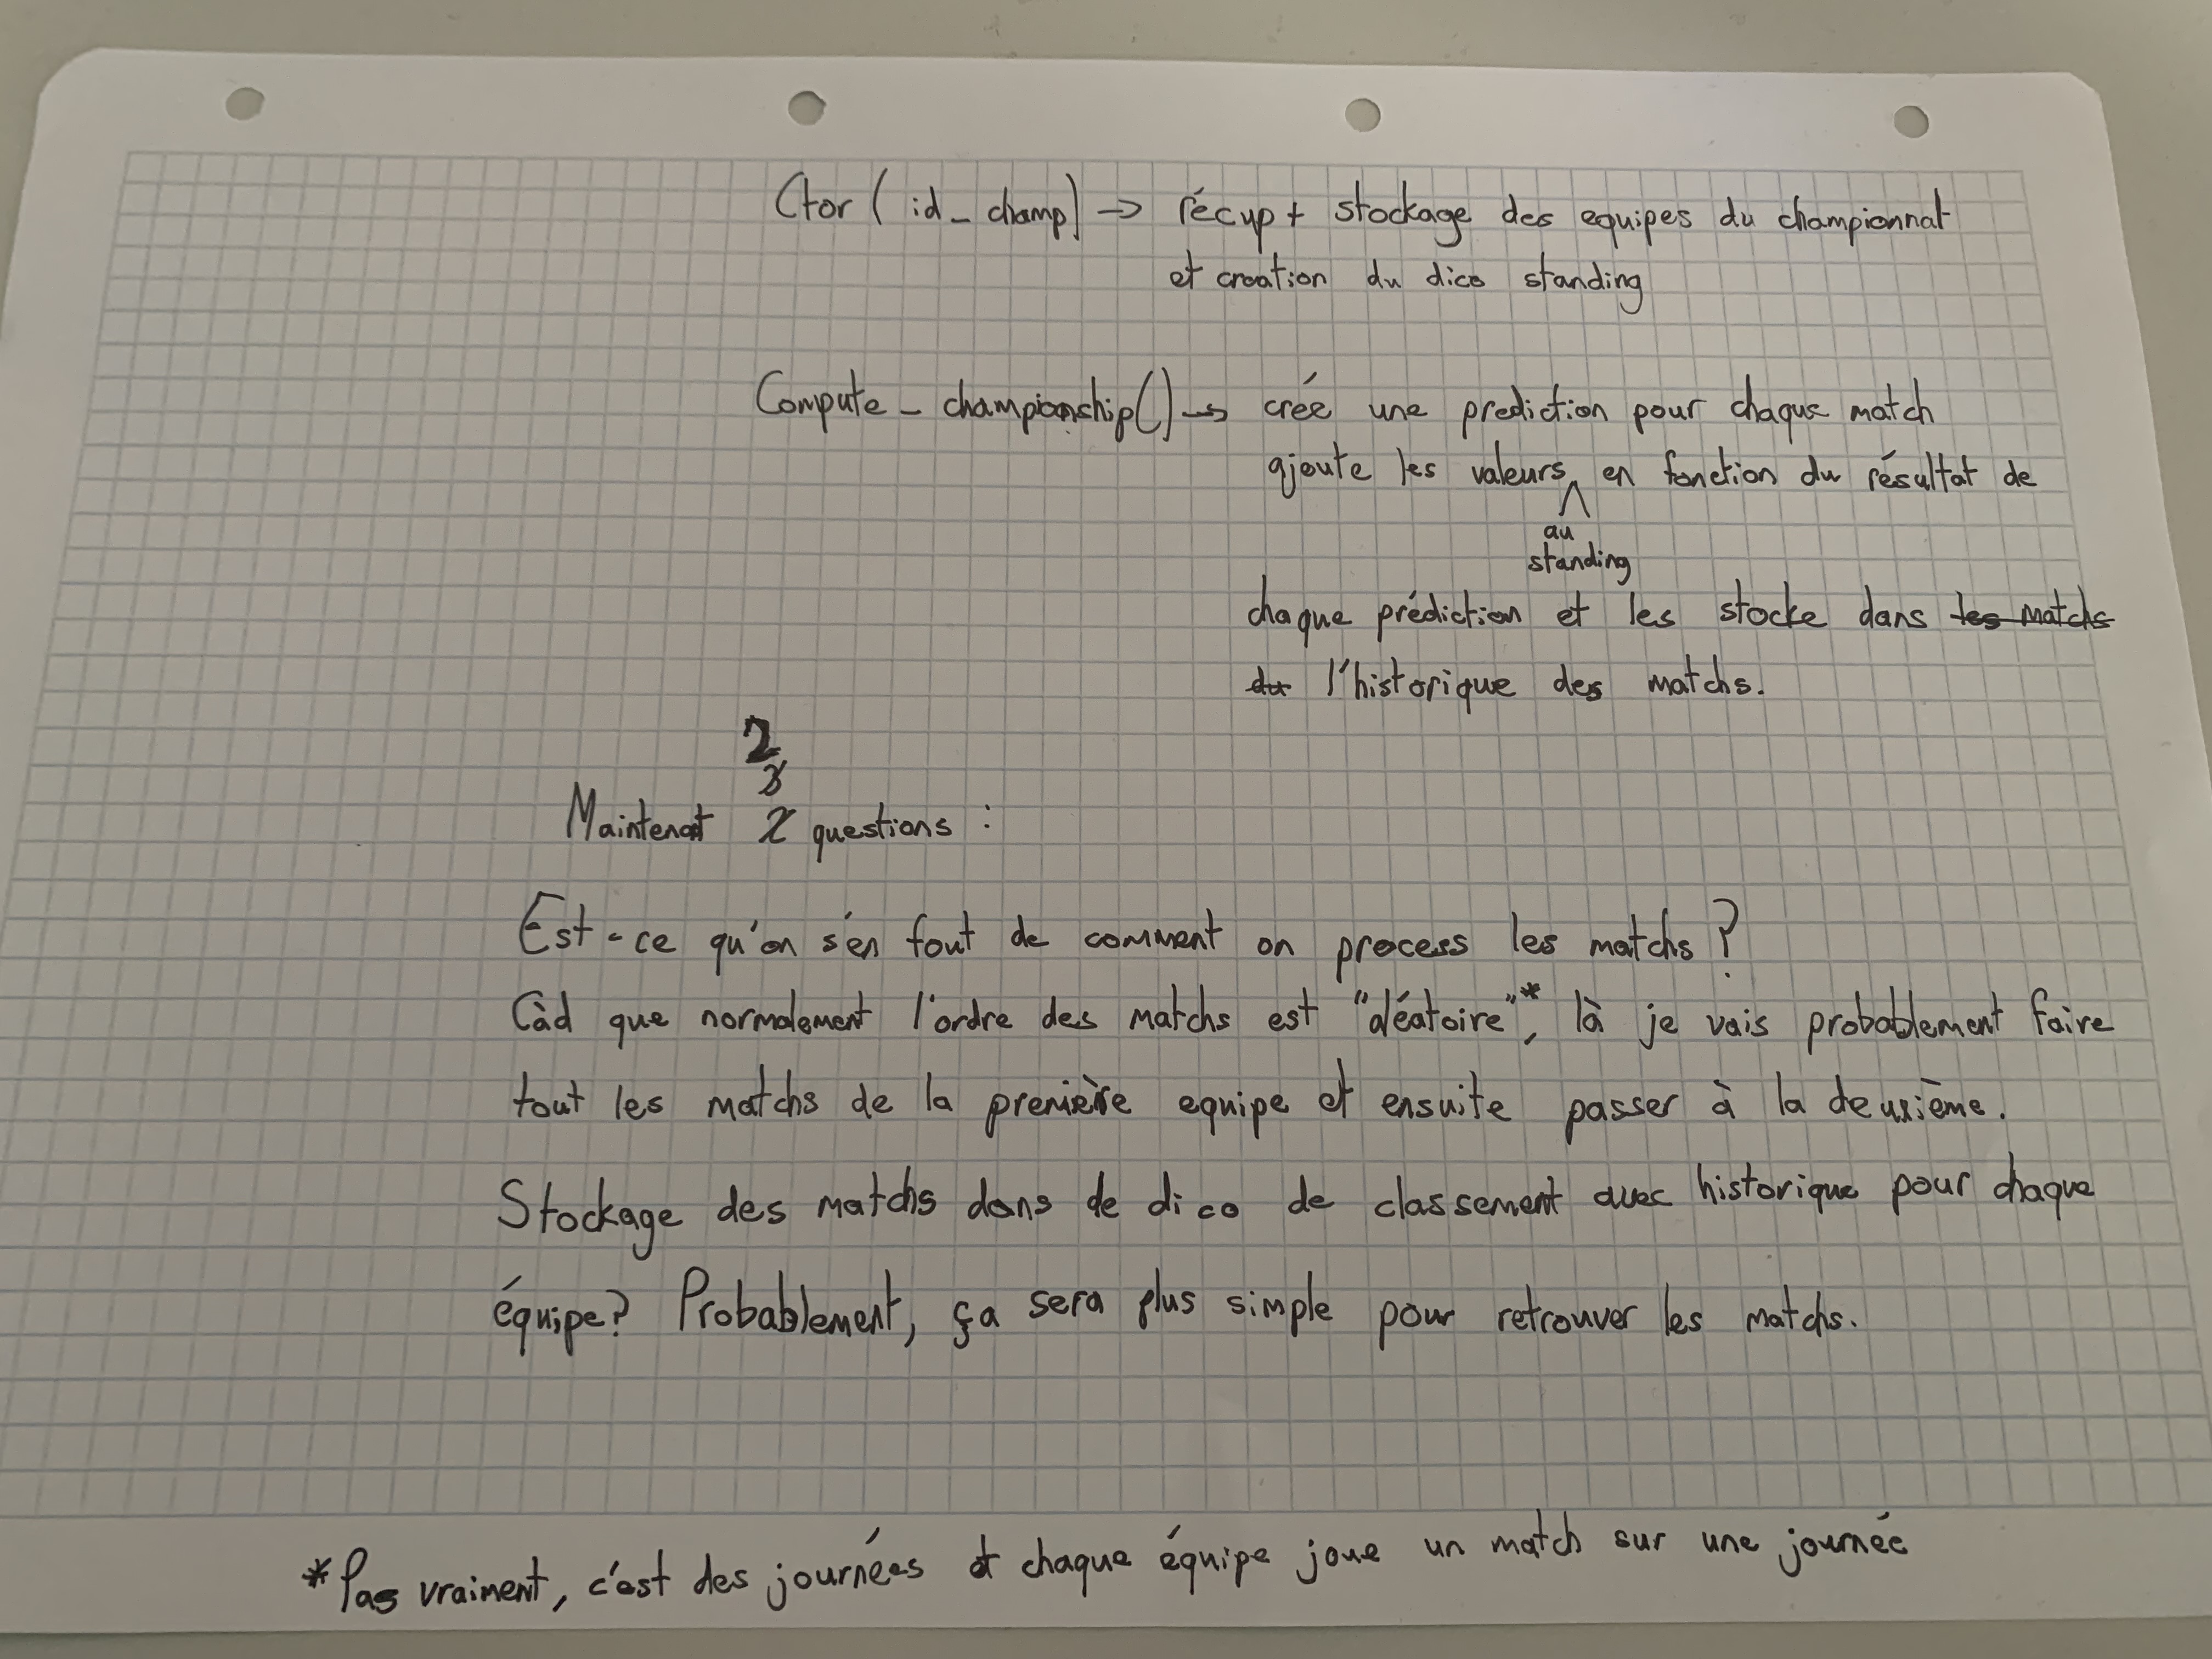 Ctor ( id_champ) -> récup + stockage des equipes du championnat
et creation du dico standing
Compute_championship() -> créé une prediction pour chaque match
ajoute les valeurs en fonction du résultat de
au
standing
chaque prédiction et les stocke dans les matchs
du l'historique des matchs.
2
3
Maintenant 2 questions :
Est-ce qu'on s'en fout de comment on process les matchs ?
Càd que normalement l'ordre des matchs est "aléatoire"*, là je vais probablement faire
tout les matchs de la première equipe et ensuite passer à la deuxième.
Stockage des matchs dans de dico de classement avec historique pour chaque
équipe? Probablement, ça sera plus simple pour retrouver les matchs.
*Pas vraiment, c'est des journées et chaque équipe joue un match sur une journée